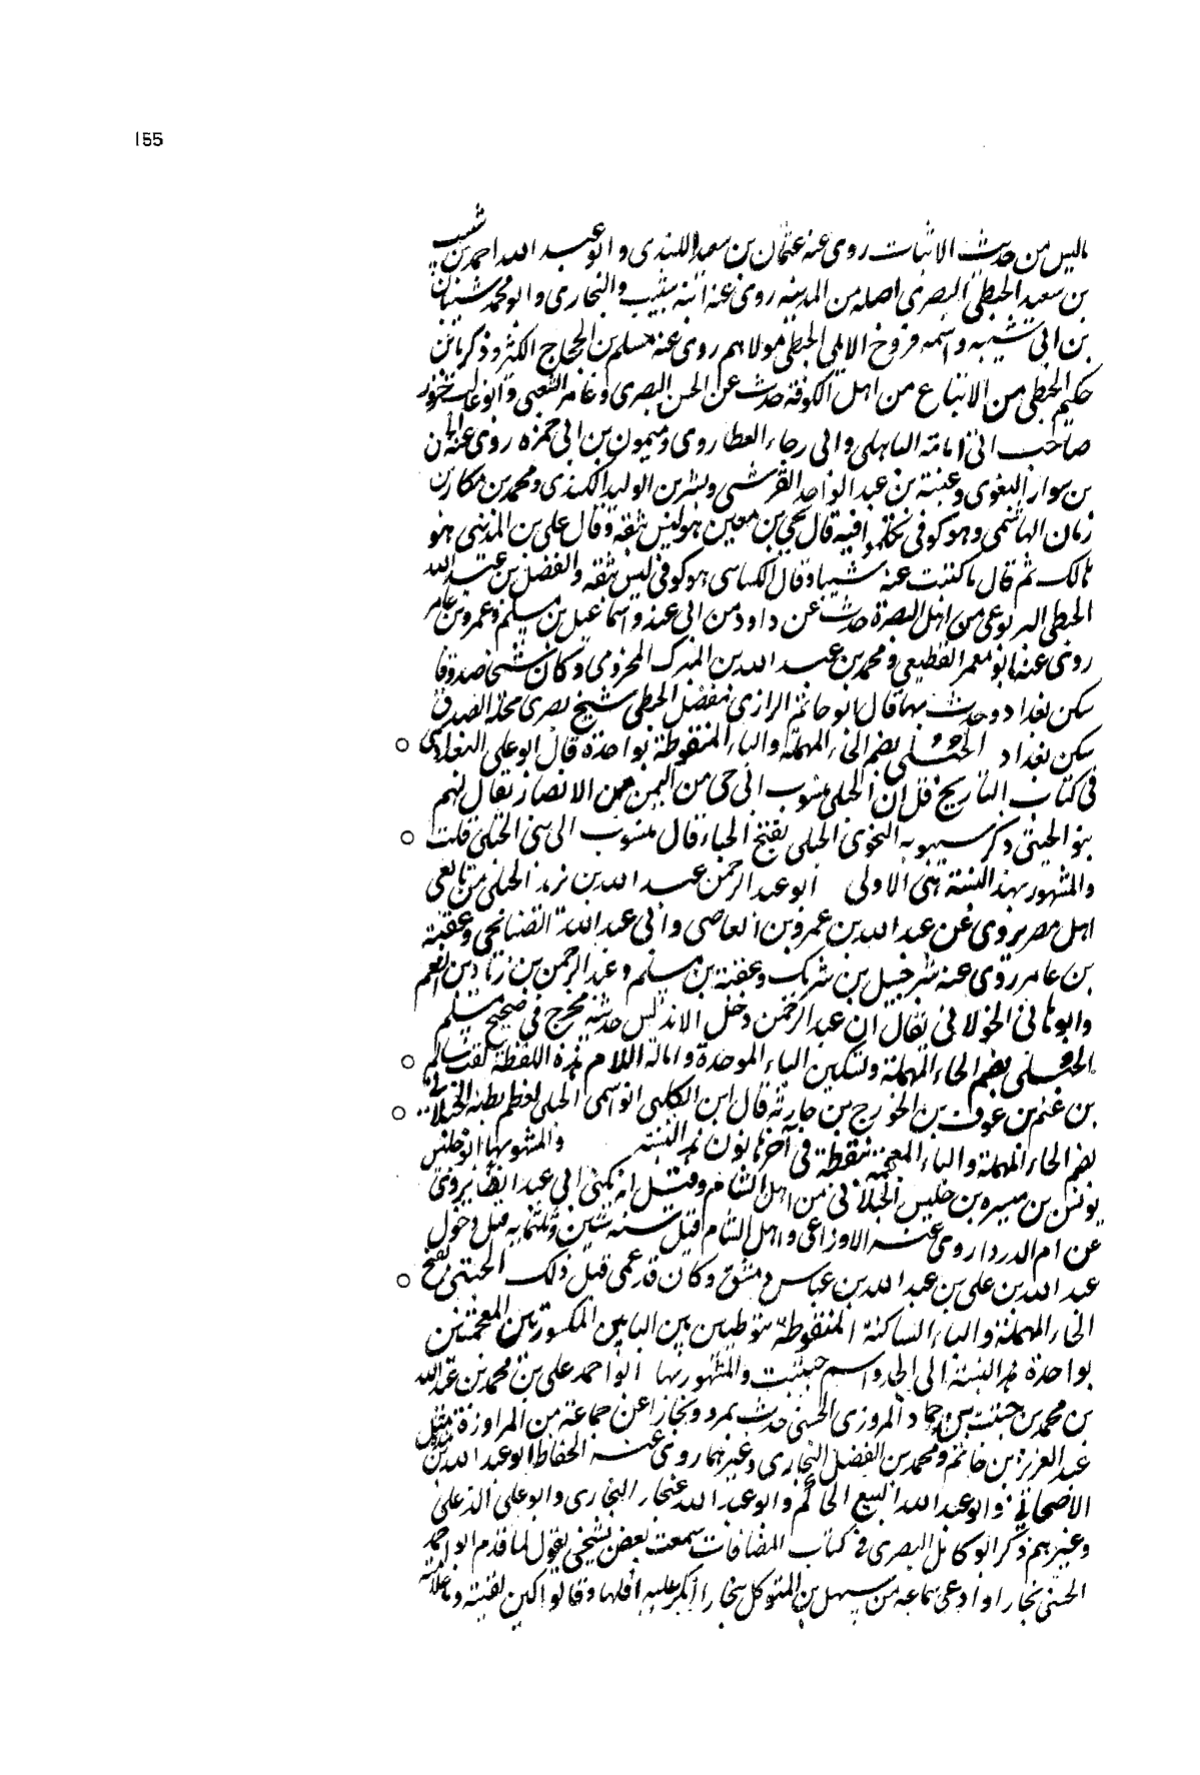 155
ما ليس من حديث الاثبات روى عنه عثمان بن سعيد الكندى و ابو عبد الله احمد بن شبيب
بن سعيد الحبطى البصرى اصله من المدينة روى عنه ابنه شبيب والبخارى وابو محمد شيبان
بن ابى شيبه واسمه فروخ الابلى الحبطى مولاهم روى عنه مسلم بن الحجاج الكثير وذكريا بن
حكيم الحبطى من الاتباع من اهل الكوفة حدث عن الحسن البصرى وعامر الشعبى وابو غالب حزور
صاحب ابى امامة الباهلى وابى رجاء العطاروى وميمون بن ابى حمزه روى عنه
بن سوار البغوى وعنبسة بن عبد الواحد القرشى وبشر بن الوليد الكندى ومحمد بن بكار بن
زمان الهاشمى وهو كوفى تكلموا فيه قال يحيى بن معين هو ليس بثقة وقال على بن المدينى هو
هالك ثم قال ما كتبت عنه شيا وقال النساى هو كوفى ليس بثقه والفضل بن عبد الله
الحبطى اليربوعى من اهل البصرة حدث عن داود بن ابى هند واسماعيل بن مسلم وعمرو بن عامر
روى عنه ابو معمر القطيعى ومحمد بن عبد الله بن المبرك المخرومى وكان شيخا صدوقا
سكن بغداد وحدث بها قال ابو حاتم الرازى مفضل الحبطى شيخ بصرى محله الصدق
سكن بغداد الحبلى بضم الحاء المهملة والباء المنقوطة بواحدة قال ابو على البغدادى
فى كتاب التاريخ قل ان الحبلى منسوب الى حى من اليمن من الانصار يقال لهم
بنو الحبلى ذكر سيبويه النحوى الحبلى بفتح الباء قال منسوب الى بنى الحبلى قلت
والمشهور بهذه النسبة بنى الاولى ابو عبد الرحمن عبد الله بن يزيد الحبلى من تابعى
اهل مصر يروى عن عبد الله بن عمرو بن العاصى وابى عبد الله الصنابحى وعقبة
بن عامر روى عنه شرحبيل بن شريك وعقبة بن مسلم وعبد الرحمن بن زياد بن انعم
وابو هانى الخولانى يقال ان عبد الرحمن دخل الاندلس حديثه مخرج فى صحيح مسلم
الحبلى بضم الحاء المهملة وتسكين الباء الموحدة وامالة اللام هذه اللفظة لقب سالم
بن غنم بن عوف بن الخزرج بن حارثة قال ابن الكلبى انما سمى الحبلى لعظم بطنه الحبلانى
بضم الحاء المهملة والباء المعجمة بنقطة فى آخرها نون هذه النسبة والمشهور بها ابو حلبس
يونس بن ميسره بن حلبس الحبلانى من اهل الشام وقيل انه يكنى ابى عبد ايضا يروى
عن ام الدرداء روى عنه الاوزاعى واهل الشام قتل سنة ثنتين وثلثين ومايه قبل دخول
عبد الله بن على بن عبد الله بن عباس دمشق وكان قد عمى قبل ذلك الحبيبى بفتح
الحاء المهملة والباء الساكنة المنقوطة بنقطتين بين البايين المكسورتين المعجمتين
بواحدة هذه النسبة الى الجد واسم حبيب والمشهور بها ابو احمد على بن محمد بن عبد الله
بن محمد بن حبيب بن حماد المروزى الحبيبى حدث بمرو وبخارا عن جماعة من المراوزة مثل
عبد العزيز بن حاتم ومحمد بن الفضل البخارى وغيرهما روى عنه الحفاظ ابو عبد الله بن
الاصبهانى وابو عبد الله البيع الحاكم وابو عبد الله غنجار البخارى وابو على
وغيرهم ذكر ابو كامل البصرى فى كتاب المضافات سمعت بعض شيخى يقول لما قدم ابو احمد
الحبيبى بخارا وادعى سماعه من سهل بن المتوكل بخارا انكر عليه اهلها وقالوا اين لقيته